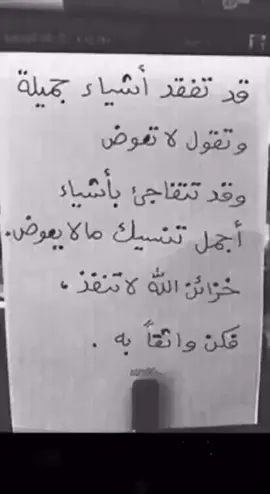 قد تفقد أشياء جميلة
وتقول لا تعوض
وقد تتفاجئ بأشياء
أجمل تنسيك مالا يعوض.
خزائن الله لا تنفذ،
فكن واثقاً به.